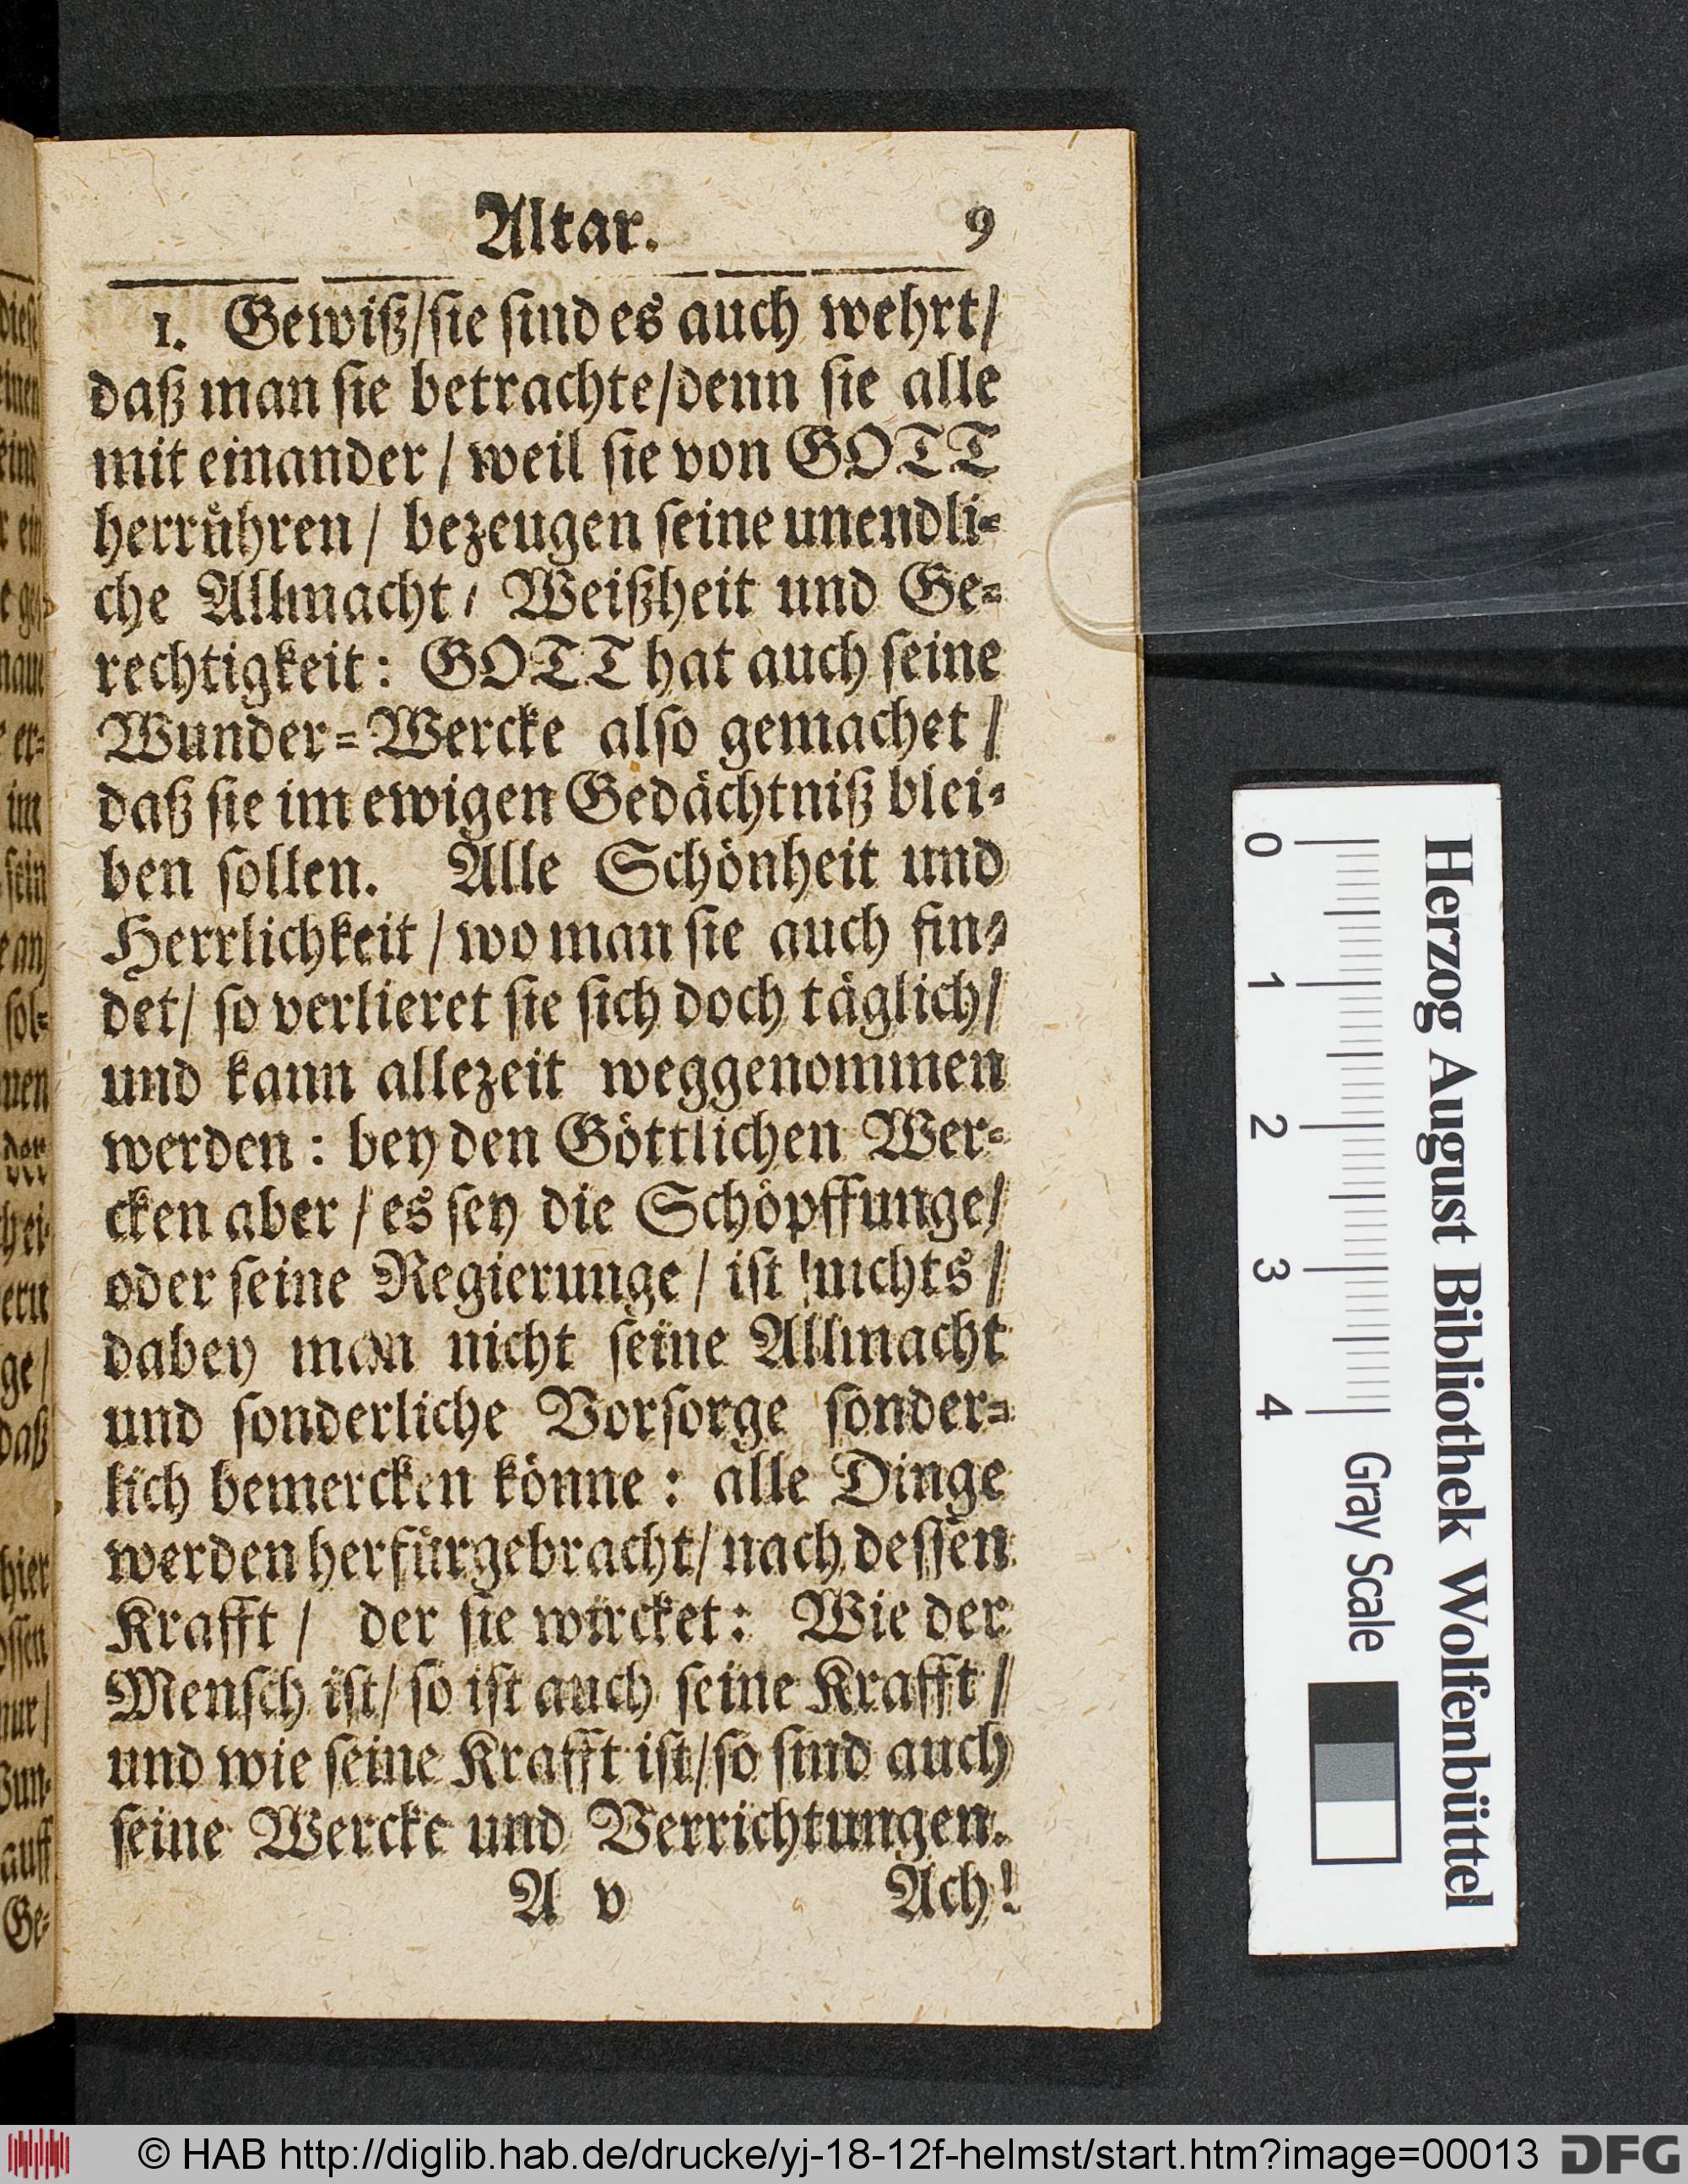 Altar. 9
1. Gewiß/sie sind es auch wehrt/
daß man sie betrachte/denn sie alle
mit einander / weil sie von GOTT
herrühren / bezeugen seine unendli=
che Allmacht / Weißheit und Ge=
rechtigkeit: GOTT hat auch seine
Wunder=Wercke also gemachet /
daß sie im ewigen Gedächtniß blei=
ben sollen. Alle Schönheit und
Herrlichkeit / wo man sie auch fin=
det/ so verlieret sie sich doch täglich/
und kann allezeit weggenommen
werden : bey den Göttlichen Wer=
cken aber / es sey die Schöpffunge/
oder seine Regierunge / ist nichts /
dabey man nicht seine Allmacht
und sonderliche Vorsorge sonder=
lich bemercken könne : alle Dinge
werden herfürgebracht/ nach dessen
Krafft / der sie wircket: Wie der
Mensch ist/ so ist auch seine Krafft /
und wie seine Krafft ist/so sind auch
seine Wercke und Verrichtungen.
A v Ach!
Herzog August Bibliothek Wolfenbüttel
0 1 2 3 4 Gray Scale
© HAB http://diglib.hab.de/drucke/yj-18-12f-helmst/start.htm?image=00013 DFG